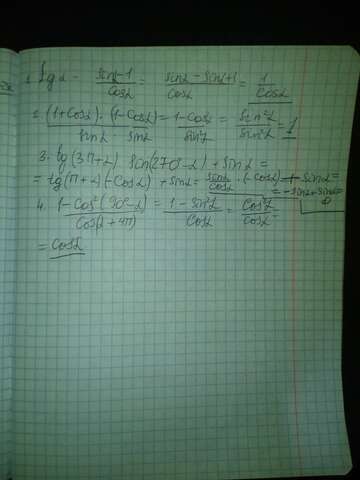 1. tg α - (sin α - 1)/cos α = (sin α - sin α + 1)/cos α = 1/cos α
2. (1+cos α)·(1-cos α)/(sin α · sin α) = (1-cos²α)/sin²α = sin²α/sin²α = 1
3. tg(3π+α) sin(270°-α) + sin α =
= tg(π+α)(-cos α) + sin α = sin α/cos α · (-cos α) + sin α = = -sin α + sin α = 0
4. (1-cos²(90°-α))/cos(α+4π) = (1-sin²α)/cos α = cos²α/cos α =
= cos α